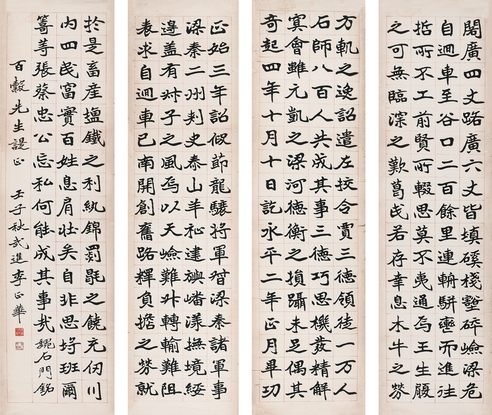 正始三年詔假節龍驤將軍督梁秦諸軍事
梁秦二州刺史泰山羊祉建旟嶓漾撫境綏
邊蓋有叔子之風焉以天嶮難升轉輸難阻
表求自迴車已南開創舊路釋負擔之勞就
方軌之逸詔遣左校令賈三德領徒一萬人
石師八百人共成其事三德巧思機發精解
冥會雖元凱之梁河德衡之損躡未足偶其
奇起四年十月十日訖永平二年正月畢功
閣廣四丈路廣六丈皆填磎棧壑砰嶮梁危
自迴車至谷口二百餘里連輈駢轡而進往
哲所不工前賢所輟思莫不夷通焉王生履
之可無臨深之歎葛氏若存幸息木牛之勞
於是畜產鹽鐵之利紈錦罽毼之饒充仞川
內四民富實百姓息肩壯矣自非思埒班爾
籌等張蔡忠公忘私何能成其事哉 魏石門銘
百穀先生諟正 壬子秋武進李正華